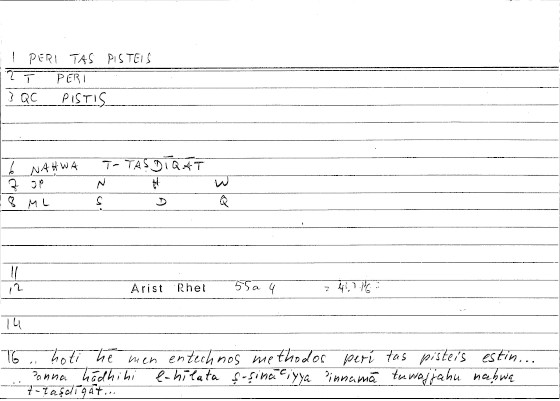 1 PERI TAS PISTEIS
2 T PERI
3 QC PISTIS
6 NAḤWA T-TAṢDĪQĀT
7 JP N Ḥ W
8 ML Ṣ D Q
11
12 Arist Rhet 55a 4
14
16 .. hoti hē men entechnos methodos peri tas pisteis estin...
.. ʾanna hādhihi l-ḥīlata ṣ-ṣināʿiyya ʾinnamā tuwajjahu naḥwa
t-taṣdīqāt...